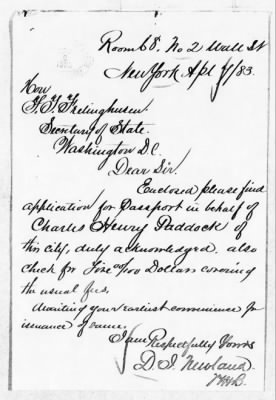 Room 68. No 2 Wall St
New York Apl 7/83
Hon
F. T. Frelinghusen
Secretary of State.
Washington D.C.
Dear Sir.
Enclosed please find
application for Passport in behalf of
Charles Henry Paddock of
this city, duly acknowledged. also
check for Five 0/100 Dollars covering
the usual fees.
Awaiting your earliest convenience for
issuance of same.
I am Respectfully Yours
D. J. Newland